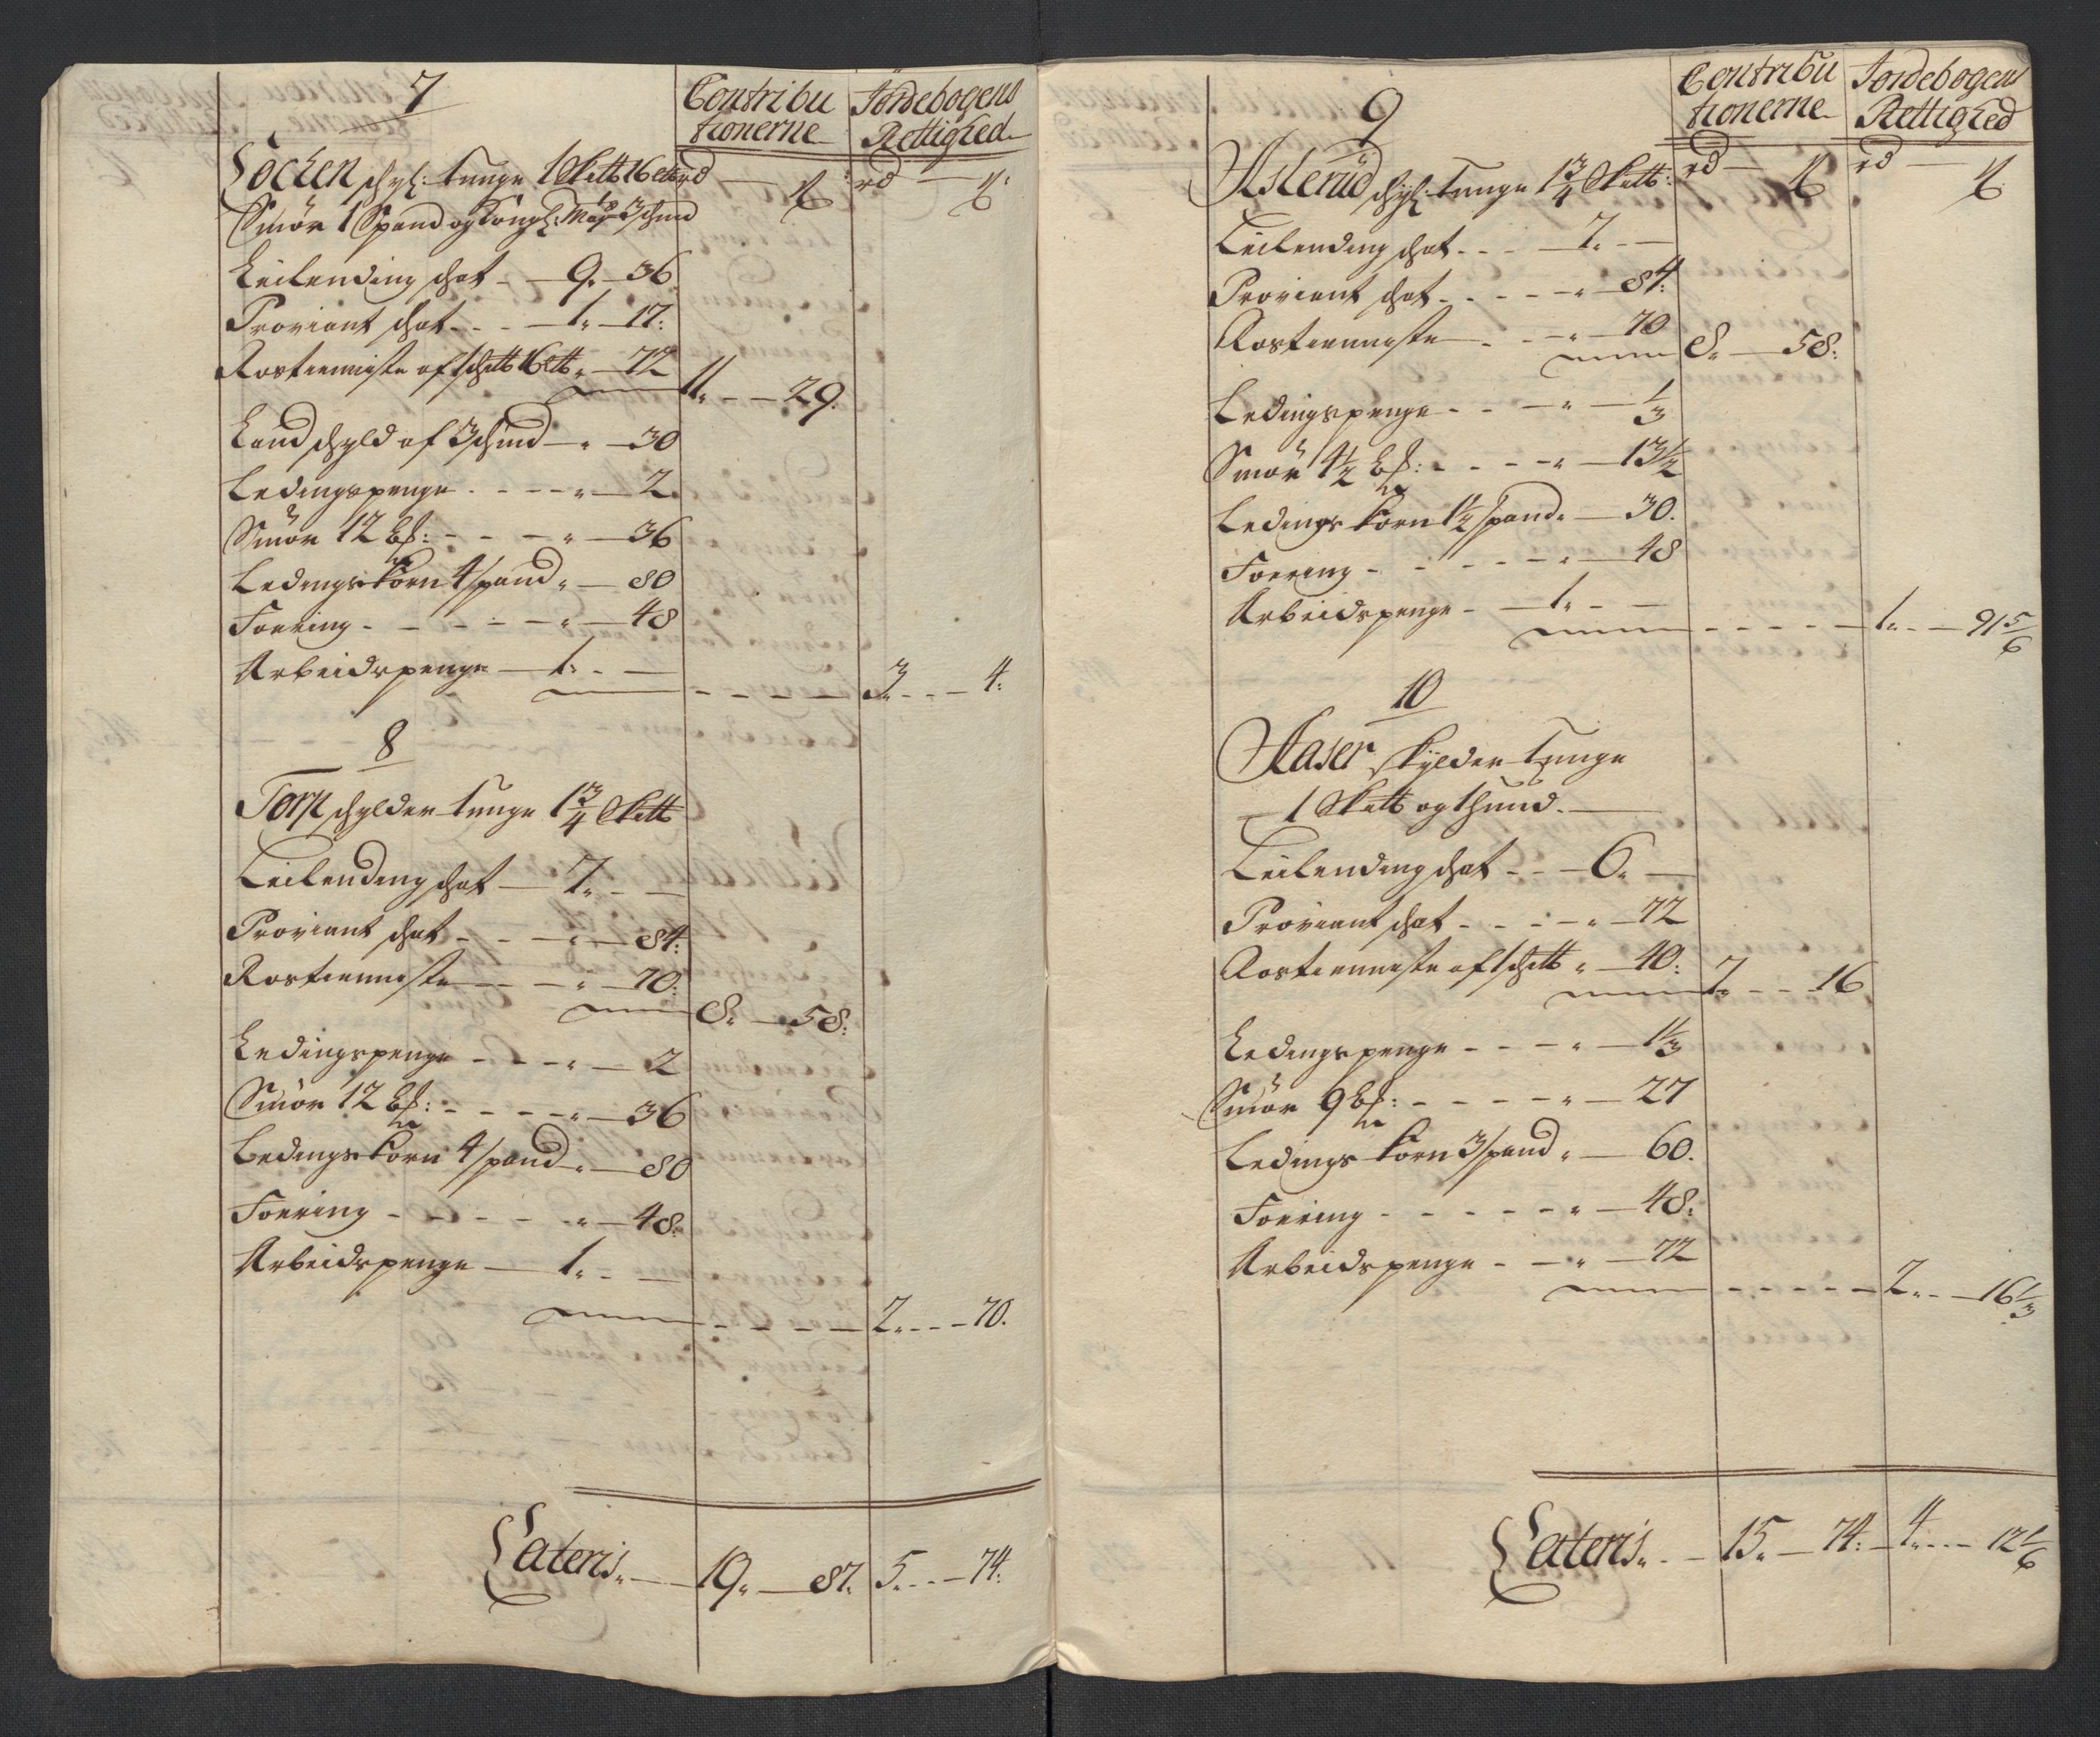 7
Contribu
tionerne
Jordebogens
Rettighed
Locken schyl: tunge 1 Skett 16 ett
rd — ß
rd — ß:
Smör 1 Spand og Kongl: May 3 schind
Leilending schat - - 9. - 36
Proviant schat - - - 1. - 17:
Rostienniste af 1 schett 16 ett „ - 72
11. - - 29.
Landschyld af 3 schind - „ - 30
Ledingspenge - - - - „ - 2.
Smör 12 bs: - - - „ - 36
Ledings korn 4 spand „ - 80
Foering - - - - - „ - 48
Arbeidspenge - 1. - -
- - - - 3. - - 4:
8
Torp schylder tunge 1 3/4 Skett
Leilending schat - 7. - -
Proviant schat - - - „ - 84:
Rostienniste - - - „ - 70:
8. - 58:
Ledingspenge - - - „ - 2
Smör 12 bs: - - - - „ - 36
Ledings korn 4 spand „ - 80
Foering - - - - „ - 48:
Arbeidspenge - 1. - -
- - - - 2. - - - 70.
Lateris. - 19. - 87. 5. - - - 74:
9
Contribu
tionerne
Jordebogens
Rettighed
Asterud schyl: tunge 1 3/4 Skett:
rd — ß
rd — ß
Leilending schat - - - 7. - -
Proviant schat - - - - „ - 84:
Rostienniste - - - „ - 70
8. - 58:
Ledingspenge - - - „ - 1/3
Smör 4 1/2 bs: - - - - „ - 13 1/2
Ledings korn 1 1/2 spand „ - 30.
Foering - - - - - „ - 48
Arbeidspenge - - 1. - -
- - - - - 1. - - 91 5/6
10
Haser skylder tunge
1 Skett og 1 hund. -
Leilending schat - - 6. -
Proviant schat - - - - „ - 72
Rostienniste af 1 schett „ - 40:
7. - - 16
Ledingspenge - - - „ - 1 1/3
Smör 9 bs: - - - - „ - 27
Ledings korn 3 spand „ - 60.
Foering - - - - - „ - 48:
Arbeidspenge - - „ - 72
- - - - - 2. - - 16 1/3
Lateris. - - 15. - 74: - 4. - - - 12 1/6